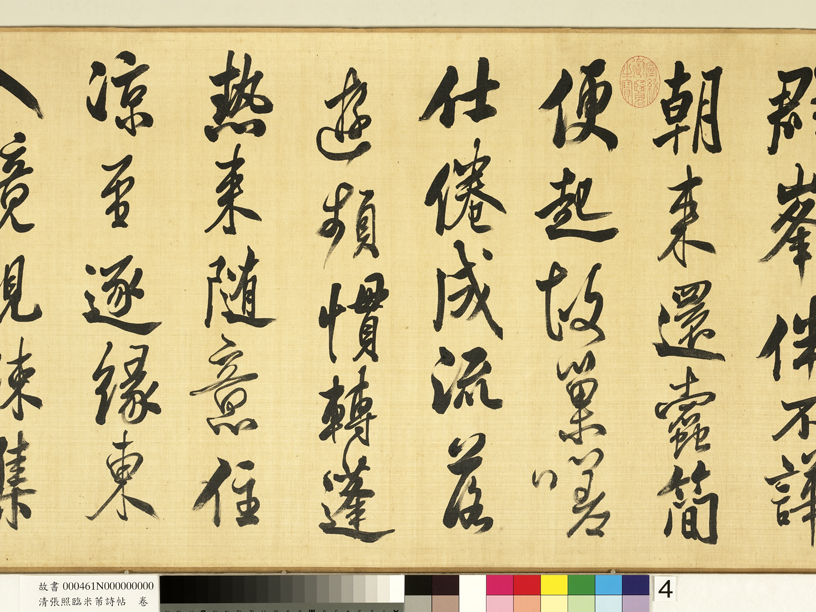 群峯伴不譁
朝来還蠹簡
便起故巢嗟
仕倦成流落
遊頻慣轉蓬
熱来隨意住
凉至逐緣東
入竟親疎集
故書 000461N000000000
清張照臨米芾詩帖 卷
4